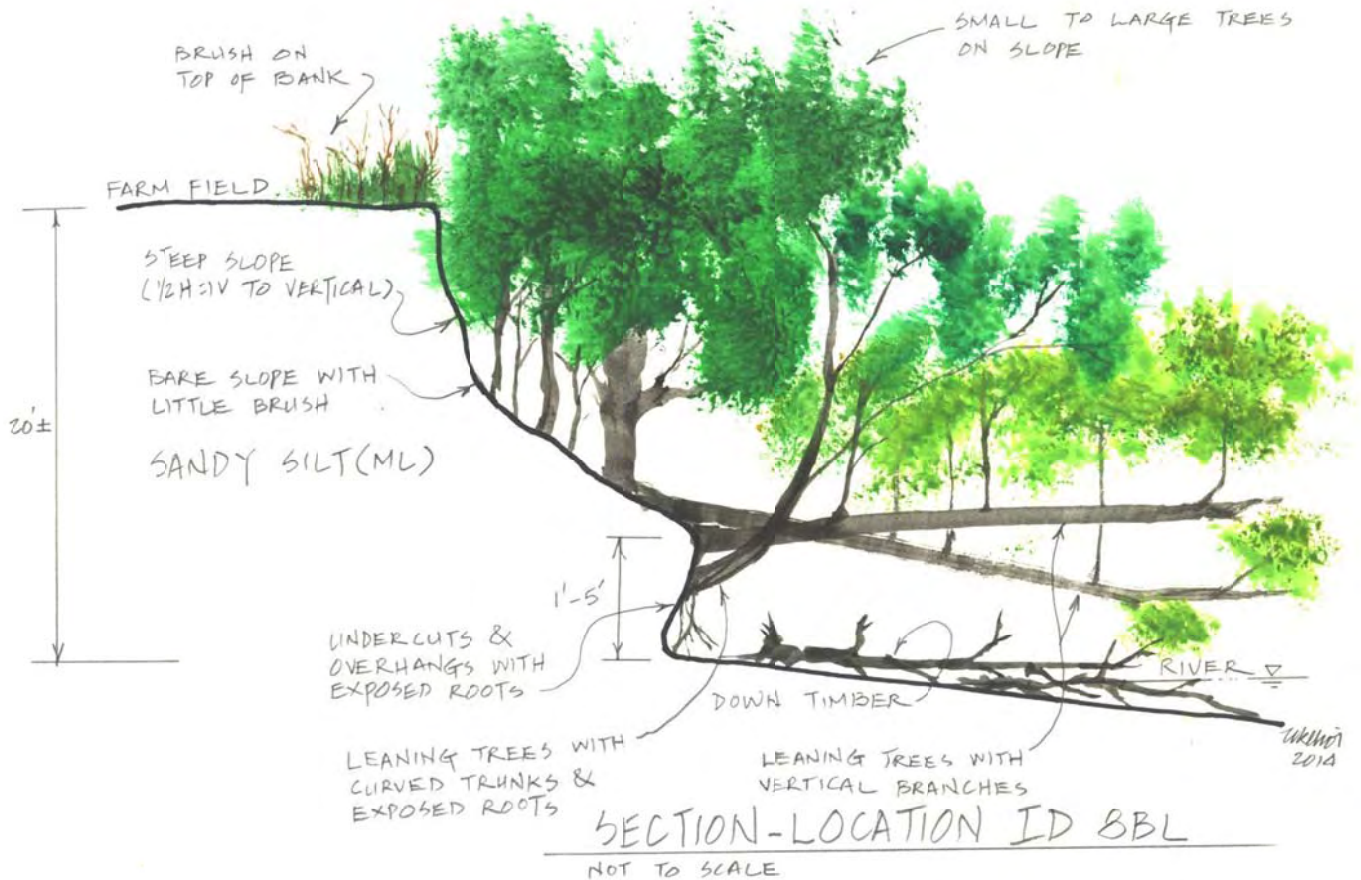 BRUSH ON
TOP OF BANK
SMALL TO LARGE TREES
ON SLOPE
FARM FIELD
STEEP SLOPE
(1/2H:1V TO VERTICAL)
BARE SLOPE WITH
LITTLE BRUSH
20'±
SANDY SILT (ML)
1'-5'
UNDERCUTS &
OVERHANGS WITH
EXPOSED ROOTS
RIVER
DOWN TIMBER
LEANING TREES WITH
CURVED TRUNKS &
EXPOSED ROOTS
LEANING TREES WITH
VERTICAL BRANCHES
2014
SECTION-LOCATION ID 8BL
NOT TO SCALE